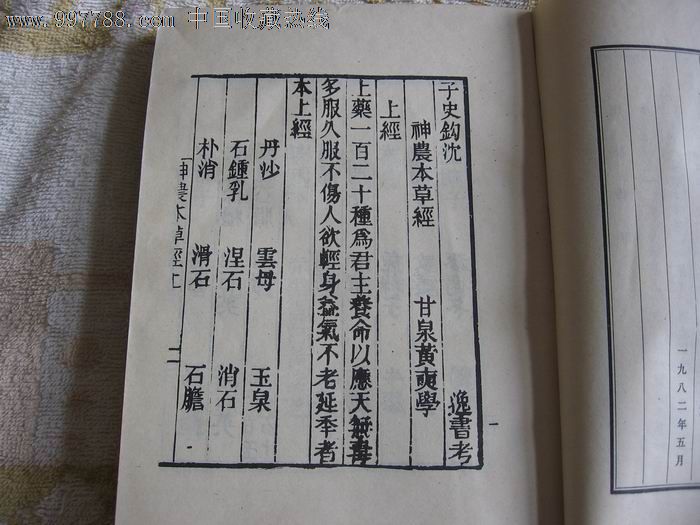 www.997788.com 中国收藏热线
子史鈎沈 逸書考
神農本草經 甘泉黃奭學
上經
上藥一百二十種爲君主養命以應天無毒
多服久服不傷人欲輕身益氣不老延年者
本上經
丹沙 雲母 玉泉
石鍾乳 涅石 消石
朴消 滑石 石膽
神農本草經上 一
一
一九八二年五月